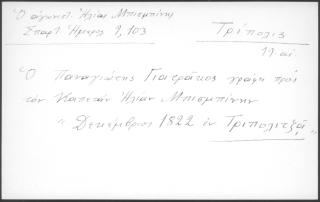 Ὁ ἀγωνιστ. Ἠλίας Μπισμπίνης
Σπαρτ. Ἡμερολ. 1, 103
Τρίπολις
19. αἰ.
Ὁ Παναγιώτης Γιατράκος γράφει πρὸς
τὸν Καπετὰν Ἠλίαν Μπισμπίνην
" Δεκέμβριος 1822 ἐν Τριπολιτζᾷ "